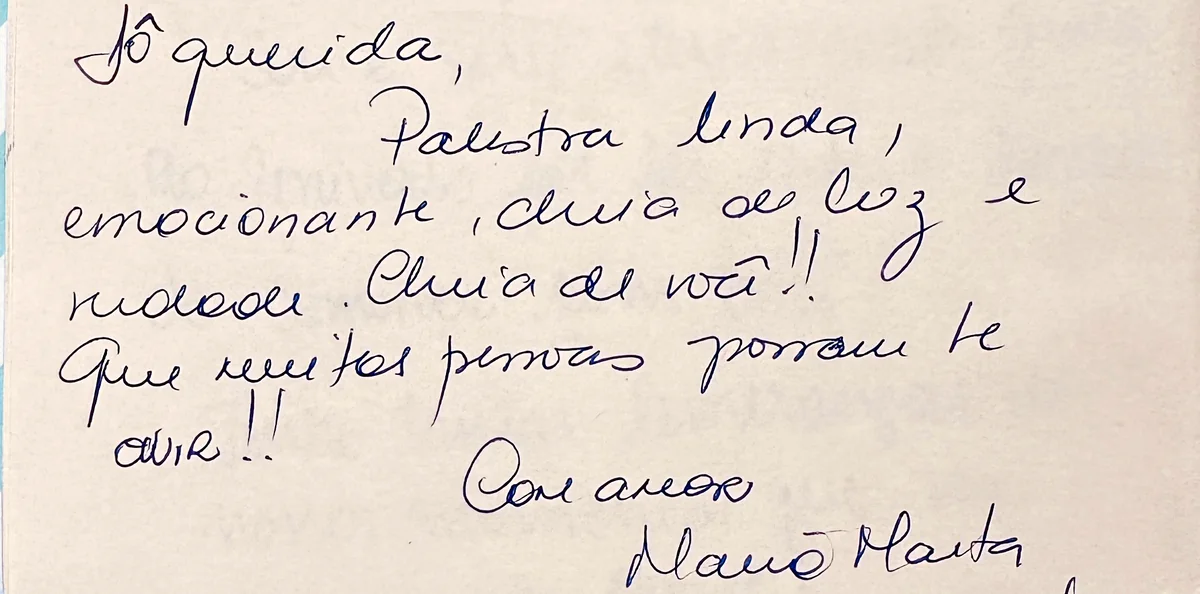 Jô querida,
Palestra linda,
emocionante, cheia de luz e
verdade. Cheia de você!!
Que muitas pessoas possam te
ouvir!!
Com amor
Marta